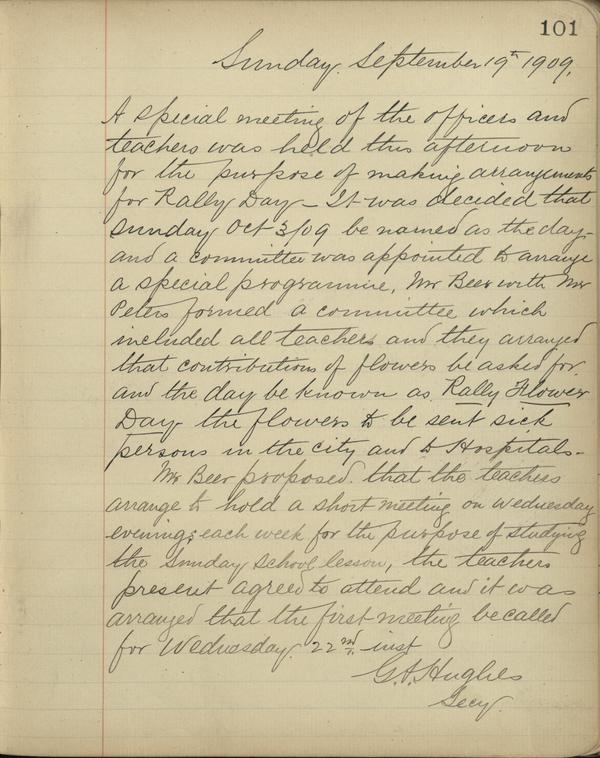 101
Sunday. September 19th 1909.
A special meeting of the officers and
teachers was held this afternoon
for the purpose of making arrangements
for Rally Day - It was decided that
Sunday Oct 3/09 be named as the day -
and a committee was appointed to arrange
a special programme, Mr Beer with Mr
Peters formed a committee which
included all teachers and they arranged
that contributions of flowers be asked for
and the day be known as Rally Flower
Day - the flowers to be sent sick
persons in the city and to Hospitals -
Mr Beer proposed that the teachers
arrange to hold a short meeting on Wednesday
evenings each week for the purpose of studying
the Sunday School lesson, the teachers
present agreed to attend and it was
arranged that the first meeting be called
for Wednesday 22nd inst
G.A. Hughes
Secy.